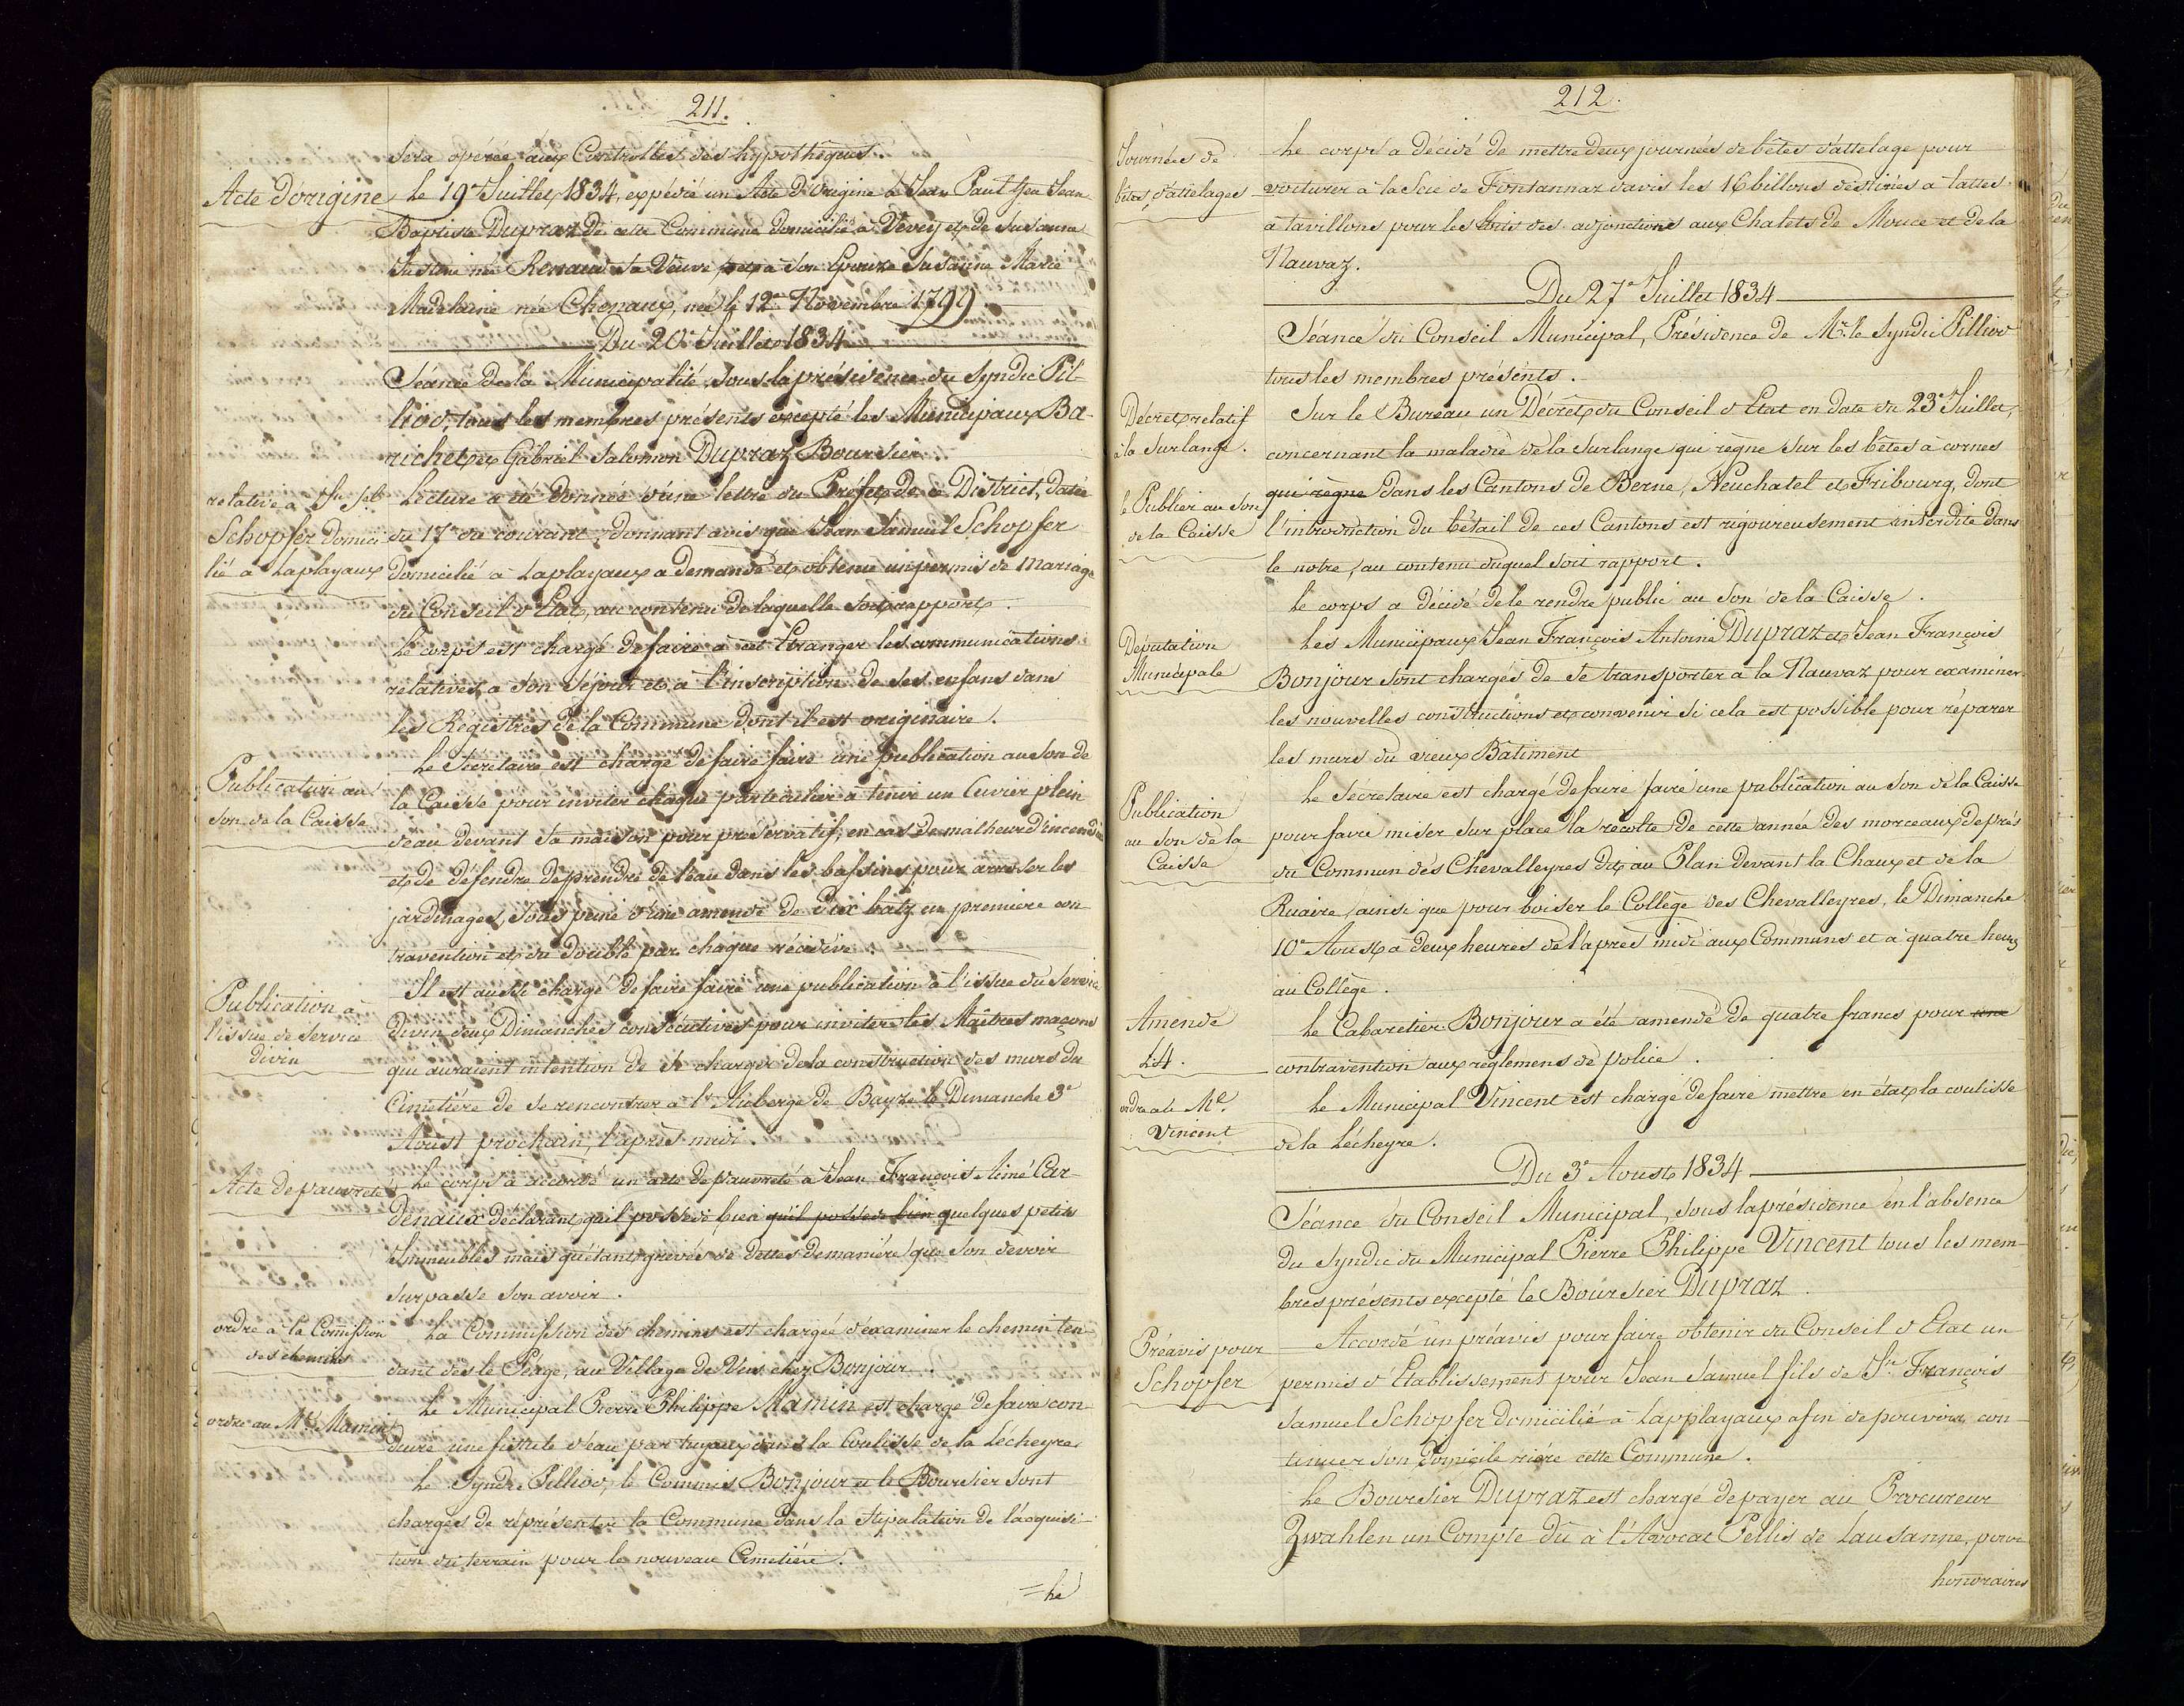 211.
sera opérée aux Controlles des hypothèques.
Acte d'origine
Le 19e Juillet 1834, expédié un Acte d'Origine à Jean Paul feu Jean
Baptiste Dupraz de cette Commune domicilié à Vevey et de Susanne
Justine née Renaud sa Veuve, et à son Epouze Susanne Marie
Madelaine née Chenaux, né le 12e Novembre 1799.
Du 20e Juillet 1834
Séance de la Municipalité, sous la présidence du Syndic Pil-
liod, tous les membres présents excepté les Municipaux Ba-
richet et Gabriel Salomon Dupraz Boursier.
relative à Jn Sel
Schopfer domici
lié à Laplayaux
Lecture a été donnée d'une lettre du Préfet de ce District, datée
du 17e du courant, donnant avis que Jean Samuel Schopfer
domicilié à Laplayaux a demandé et obtenu un permis de Mariage
du Conseil d'Etat, au contenu de laquelle soit rapport.
Le corps est chargé de faire à cet Etranger les communications
relatives à son Séjour et à l'inscription de ses enfans dans
les Régistres de la Commune dont il est originaire.
Publication au
son de la Caisse
Le Sécrétaire est chargé de faire faire une publication au son de
la Caisse pour inviter chaque particulier à tenir un Cuvier plein
d'eau devant sa maison pour préservatif, en cas de malheur d'incendie
et de défendre de prendre de l'eau dans les bassins pour arroser les
jardinages, sous peine d'une amende de Dix batz en première con
travention et du double par chaque récidive.
Publication à
l'issue de Service
divin
Il est aussi chargé de faire faire une publication à l'issue du Service
divin deux Dimanches consécutives pour inviter les Maîtres maçons
qui auraient intention de se charger de la construction des murs du
Cimetière de se rencontrer à l'Auberge de Bayze le Dimanche 3e
Aoust prochain, l'après midi.
Acte de pauvreté
Le corps a accordé un acte de pauvreté à Jean François Aimé Car-
denaux déclarant qu'il possède bien qu'il possède bien quelques petits
Immeubles mais qu'étant grevés de dettes de manière que son devoir
surpasse son avoir.
ordre à la Comission
des chemins
La Commission des chemins est chargée d'examiner le chemin ten-
dant dès le Péage, au Village de Vers chez Bonjour.
ordre au Mal Mamin
Le Municipal Pierre Philippe Mamin est chargé de faire con
duire une fistule d'eau par tuyaux dans la Coulisse de la Lécheyre
Le Syndic Pilliod, le Commis Bonjour et le Boursier sont
chargés de réprésenter la Commune dans la Stipulation de l'acquisi-
tion du terrain pour le nouveau Cimetière.
=Le
212.
Journées de
bêtes d'attelages
Le corps a décidé de mettre deux journées de bêtes d'attelage pour
voiturer à la Scie de Fontannaz davis les 16 billons destinés à lattes
à tavillons pour les toits des adjonctions aux Chalets de Mouce et de la
Nauvaz.
Du 27e Juillet 1834
Séance du Conseil Municipal, Présidence de Mr le Syndic Pilliod
tous les membres présents.
Décret relatif
à la Surlange.
Sur le Bureau un Décret du Conseil d'Etat en date du 23e Juillet,
concernant la maladie de la Surlange qui règne sur les bêtes à cornes
le Publier au son
de la Caisse
qui règne dans les Cantons de Berne, Neuchatel et Fribourg, dont
l'introduction du bétail de ces Cantons est rigoureusement interdite dans
le notre, au contenu duquel soit rapport.
Le corps a décidé de le rendre public au son de la Caisse.
Députation
Municipale
Les Municipaux Jean François Antoine Dupraz et Jean François
Bonjour sont chargés de se transporter à la Nauvaz pour examiner
les nouvelles constructions et convenir si cela est possible pour réparer
les murs du vieux Bâtiment
Publication
au son de la
Caisse
Le Sécrétaire est chargé de faire faire une publication au son de la Caisse
pour faire miser sur place la récolte de cette année des morceaux de prés
du Commun des Chevalleyres dit au Plan devant la Chaux et de la
Ruaire, ainsi que pour boiser le Collège des Chevalleyres, le Dimanche
10e Aoust à deux heures de l'après midi aux Communs et à quatre heures
au Collège.
Amende
L4.
Le Cabaretier Bonjour a été amendé de quatre francs pour une
contravention aux règlemens de police.
ordre au Mal
Vincent
Le Municipal Vincent est chargé de faire mettre en état la coulisse
de la Lécheyre.
Du 3e Aoust 1834
Séance du Conseil Municipal, sous la présidence en l'absence
du Syndic du Municipal Pierre Philippe Vincent tous les mem-
bres présents excepté le Boursier Dupraz.
Préavis pour
Schopfer
Accordé un préavis pour faire obtenir du Conseil d'Etat un
permis d'Etablissement pour Jean Samuel fils de Jn François
Samuel Schopfer domicilié à Lapplayaux afin de pouvoir con-
tinuer son domicile rière cette Commune.
Le Boursier Dupraz est chargé de payer au Procureur
Zwahlen un Compte dû à l'Avocat Pellis de Lausanne, pour
honoraires